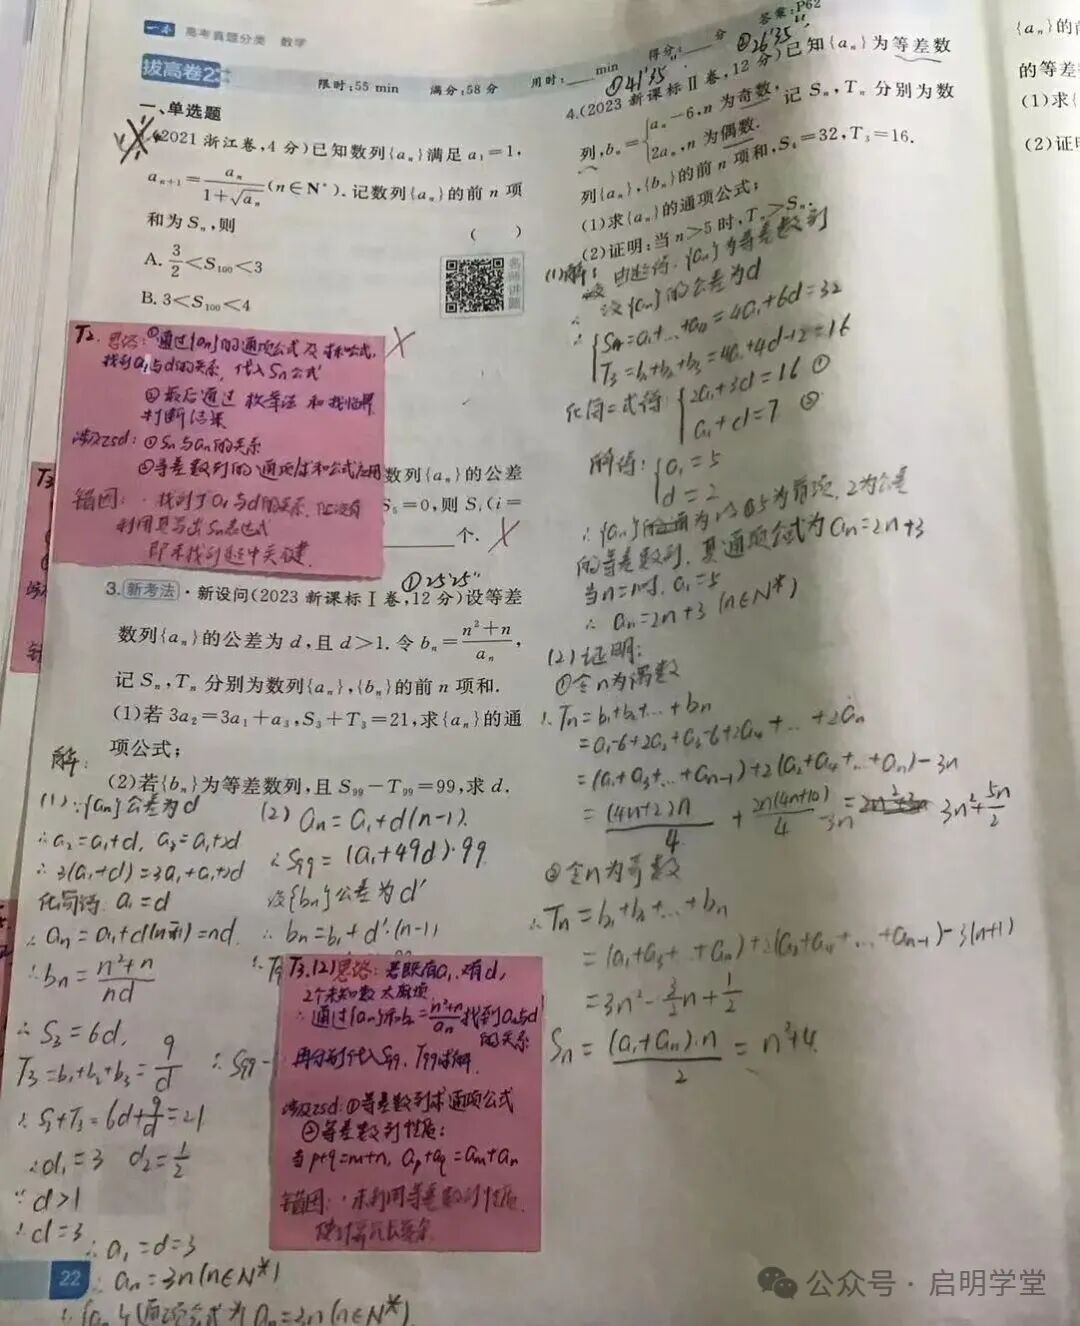 一本 高考真题分类 数学
答案:P62
拔高卷2
限时:55 min 满分:58 分 用时:____min 得分:____分
一、单选题
(2021 浙江卷,4 分)已知数列{aₙ}满足 a₁=1,
aₙ₊₁=aₙ/(1+√aₙ)(n∈N*).记数列{aₙ}的前 n 项
和为 Sₙ,则 ( )
A. 3/2<S₁₀₀<3
B. 3<S₁₀₀<4
名师讲题
T2. 思路:①通过{aₙ}的通项公式及求和公式,
找到a₁与d的关系,代入Sn公式
②最后通过枚举法和找临界
判断结果
涉及zsd:①Sn与an的关系
②等差数列的通项/求和公式应用
错因:·找到了a₁与d的关系,但没有
利用其写出Sn表达式
即未找到题中关键
数列{aₙ}的公差
S₅=0,则 Sᵢ(i=
个.
①25'25"
3.新考法·新设问(2023 新课标Ⅰ卷,12 分)设等差
数列{aₙ}的公差为 d,且 d>1.令 bₙ=(n²+n)/aₙ,
记 Sₙ,Tₙ 分别为数列{aₙ},{bₙ}的前 n 项和.
(1)若 3a₂=3a₁+a₃,S₃+T₃=21,求{aₙ}的通
项公式;
(2)若{bₙ}为等差数列,且 S₉₉-T₉₉=99,求 d.
解:
(1)∵{an}公差为d
∴a₂=a₁+d, a₃=a₁+2d
∴3(a₁+d)=3a₁+a₁+2d
化简得 a₁=d
∴an=a₁+d(n-1)=nd
∴bn=(n²+n)/nd
∴S₃=6d,
T₃=b₁+b₂+b₃=9/d
∴S₃+T₃=6d+9/d=21
∴d₁=3 d₂=1/2
∵d>1
∴d=3
∴a₁=d=3
∴an=3n(n∈N*)
∴{an}的通项公式为an=3n(n∈N*)
(2) an=a₁+d(n-1).
∴S₉₉=(a₁+49d)·99
设{bn}公差为d'
∴bn=b₁+d'·(n-1)
∴S₉₉-
T3.(2)思路:若既有a₁,又有d,
2个未知数太麻烦
∴通过{an}和bn=(n²+n)/an找到a₁与d
的关系
再分别代入S₉₉,T₉₉求解
涉及zsd:①等差数列求通项公式
②等差数列性质:
当p+q=m+n, ap+aq=am+an
错因:·未利用等差数列性质
使计算冗长复杂
①41'35" ②26'35"
4.(2023 新课标Ⅱ卷,12 分)已知{aₙ}为等差数
列,bₙ={aₙ-6,n 为奇数, 2aₙ,n 为偶数. 记 Sₙ,Tₙ 分别为数
列{aₙ},{bₙ}的前 n 项和,S₄=32,T₃=16.
(1)求{aₙ}的通项公式;
(2)证明:当 n>5 时,Tₙ>Sₙ.
(1)解:由题得,{an}为等差数列
∴设{an}的公差为d
∴{S₄=a₁+…+a₄=4a₁+6d=32
T₃=b₁+b₂+b₃=4a₁+4d-12=16
化简二式得:{2a₁+3d=16 ①
a₁+d=7 ②
解得:{a₁=5
d=2
∴{an}为以5为首项,2为公差
的等差数列,其通项公式为an=2n+3
当n=1时,a₁=5
∴an=2n+3 (n∈N*)
(2)证明:
①令n为偶数
∴Tn=b₁+b₂+…+bn
=a₁-6+2a₂+a₃-6+2a₄+…+2an
=(a₁+a₃+…+an-1)+2(a₂+a₄+…+an)-3n
=(4n+2)n/4+2n(4n+10)/4-3n=3n²+5n/2
②令n为奇数
∴Tn=b₁+b₂+…+bn
=(a₁+a₃+…+an)+2(a₂+a₄+…+an-1)-3(n+1)
=3n²-3/2n+1/2
Sn=(a₁+an)·n/2=n²+4
{aₙ}的前
的等差
(1)求{
(2)证明
22
公众号·启明学堂